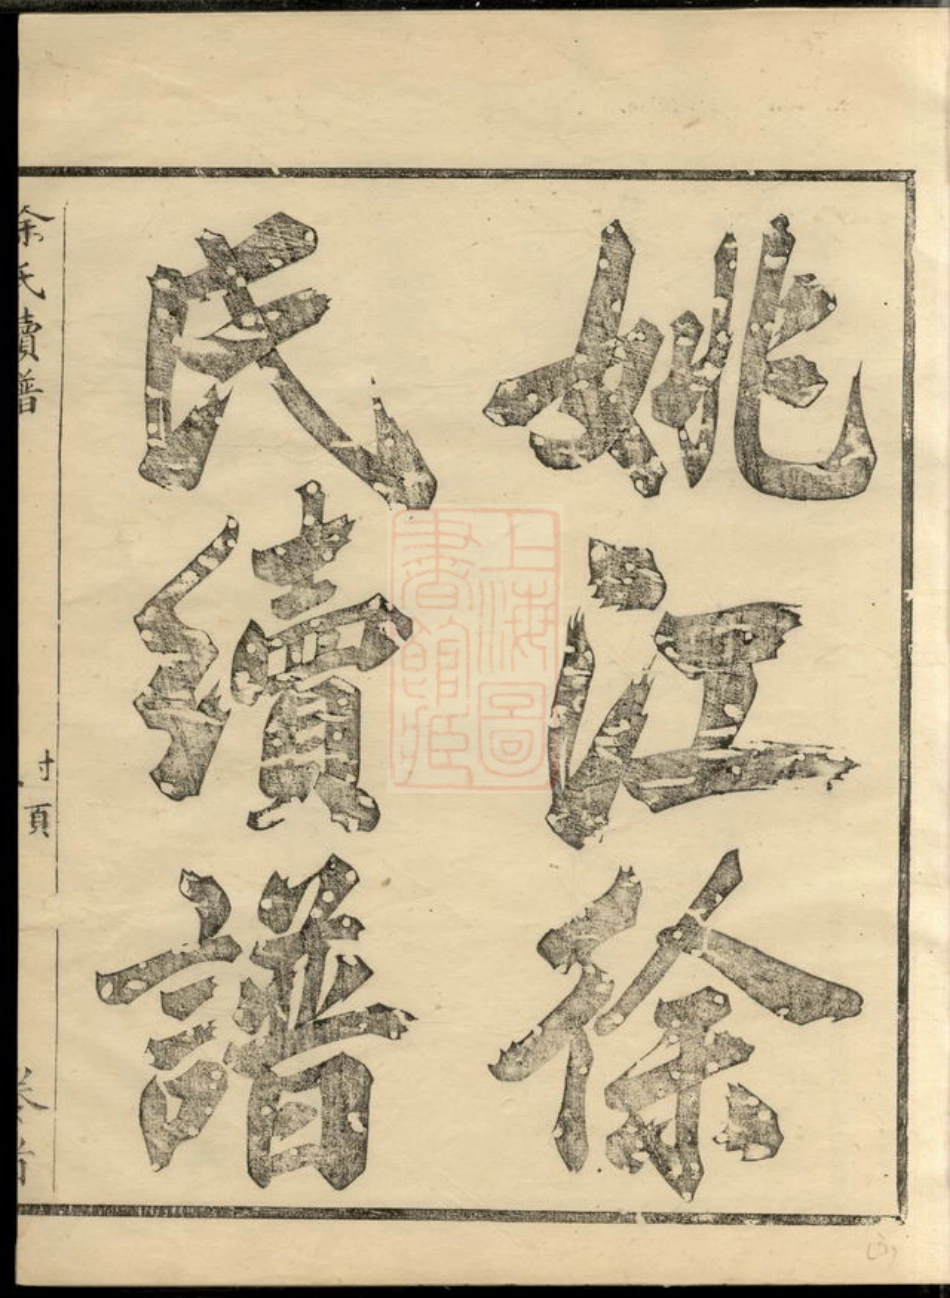 姚江徐
氏續譜
徐氏續譜
封頁
卷首
上海圖
書館藏